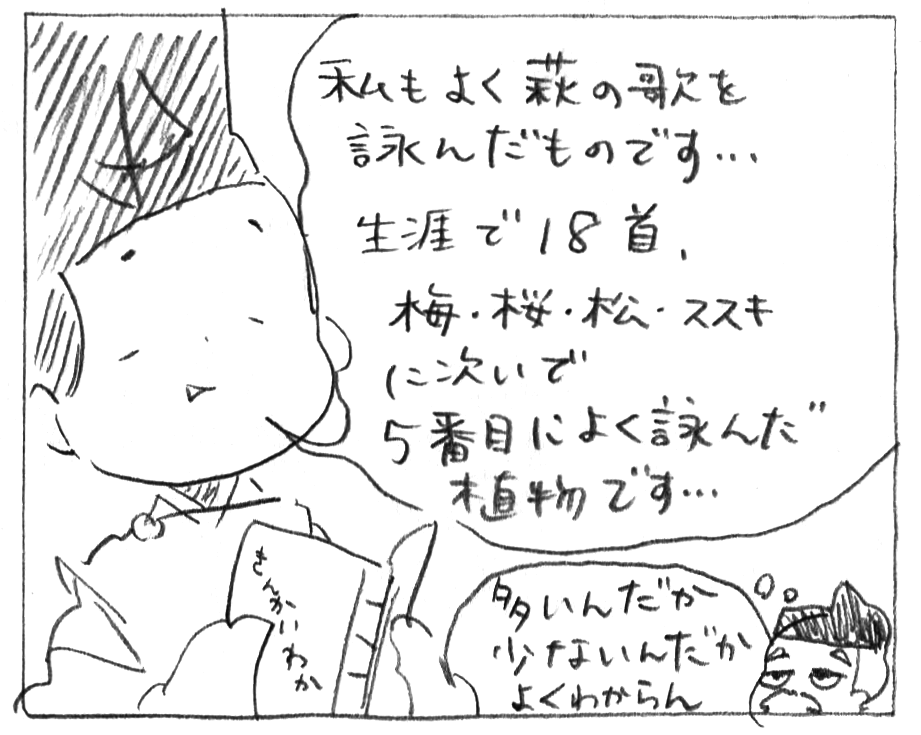 私もよく萩の歌を
詠んだものです…
生涯で18首、
梅・桜・松・ススキ
に次いで
5番目によく詠んだ
植物です…
きんかいわか
多いんだか
少ないんだか
よくわからん